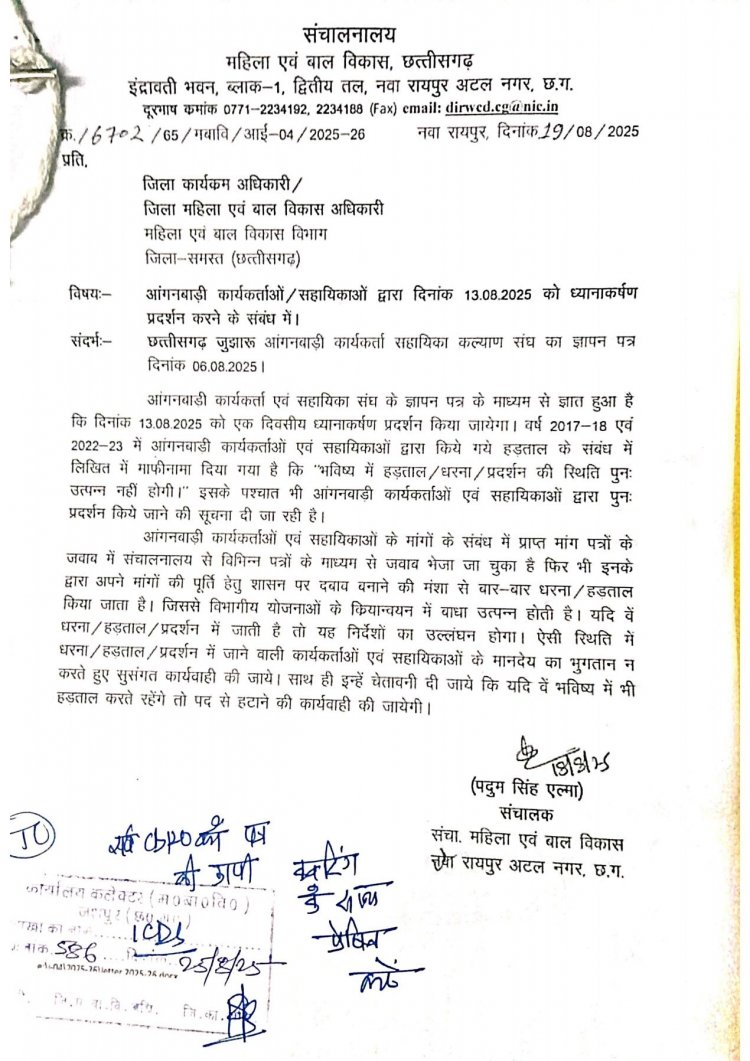 संचालनालय
महिला एवं बाल विकास, छत्तीसगढ़
इंद्रावती भवन, ब्लाक-1, द्वितीय तल, नवा रायपुर अटल नगर, छ.ग.
दूरभाष कमांक 0771-2234192, 2234188 (Fax) email: dirwcd.cg@nic.in
क्र./6702/65/मबावि/आई-04/2025-26 नवा रायपुर, दिनांक 19/08/2025
प्रति,
जिला कार्यकम अधिकारी/
जिला महिला एवं बाल विकास अधिकारी
महिला एवं बाल विकास विभाग
जिला-समस्त (छत्तीसगढ़)
विषयः- आंगनबाड़ी कार्यकर्ताओं/सहायिकाओं द्वारा दिनांक 13.08.2025 को ध्यानाकर्षण
प्रदर्शन करने के संबंध में।
संदर्भः- छत्तीसगढ़ जुझारू आंगनबाड़ी कार्यकर्ता सहायिका कल्याण संघ का ज्ञापन पत्र
दिनांक 06.08.2025।
आंगनबाडी कार्यकर्ता एवं सहायिका संघ के ज्ञापन पत्र के माध्यम से ज्ञात हुआ है
कि दिनांक 13.08.2025 को एक दिवसीय ध्यानाकर्षण प्रदर्शन किया जायेगा। वर्ष 2017-18 एवं
2022-23 में आंगनबाडी कार्यकर्ताओं एवं सहायिकाओं द्वारा किये गये हड़ताल के संबंध में
लिखित में माफीनामा दिया गया है कि "भविष्य में हड़ताल/धरना/प्रदर्शन की स्थिति पुनः
उत्पन्न नहीं होगी।" इसके पश्चात भी आंगनबाडी कार्यकर्ताओं एवं सहायिकाओं द्वारा पुनः
प्रदर्शन किये जाने की सूचना दी जा रही है।
आंगनबाडी कार्यकर्ताओं एवं सहायिकाओं के मांगों के संबंध में प्राप्त मांग पत्रों के
जवाब में संचालनालय से विभिन्न पत्रों के माध्यम से जवाब भेजा जा चुका है फिर भी इनके
द्वारा अपने मांगों की पूर्ति हेतु शासन पर दबाव बनाने की मंशा से बार-बार धरना/हडताल
किया जाता है। जिससे विभागीय योजनाओं के कियान्वयन में बाधा उत्पन्न होती है। यदि वें
धरना/हड़ताल/प्रदर्शन में जाती है तो यह निर्देशों का उल्लंघन होगा। ऐसी स्थिति में
धरना/हडताल/प्रदर्शन में जाने वाली कार्यकर्ताओं एवं सहायिकाओं के मानदेय का भुगतान न
करते हुए सुसंगत कार्यवाही की जाये। साथ ही इन्हें चेतावनी दी जाये कि यदि वें भविष्य में भी
हडताल करते रहेंगे तो पद से हटाने की कार्यवाही की जायेगी।
18/8/25
(पदुम सिंह एल्मा)
संचालक
संचा. महिला एवं बाल विकास
नवा रायपुर अटल नगर, छ.ग.
सर्व CDPO को पत्र
की कापी
के साथ
प्रेषित
करें
कार्यालय कलेक्टर (म०बा०वि०)
ICDS
586 25/8/25